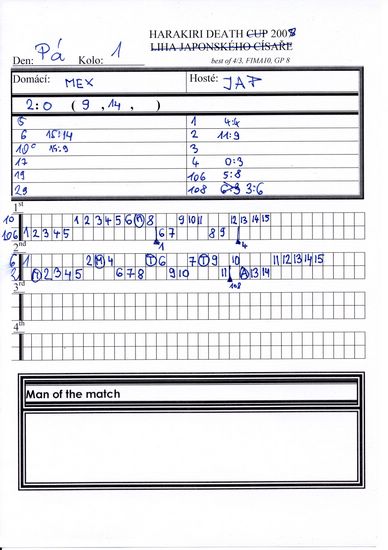 HARAKIRI DEATH CUP 2008
LIHA JAPONSKÉHO CÍSAŘE
Den: Pá Kolo: 1 best of 4/3, FIMA10, GP 8
Domácí: MEX Hosté: JAP
2:0 ( 9 , 14 , )
5 1 4:4
6 15:14 2 11:9
10 15:9 3
17 4 0:3
19 106 5:8
29 108 3:6
1st
10 1 2 3 4 5 6 7 8 9 10 11 12 13 14 15
106 1 2 3 4 5 6 7 8 9
1 4
2nd
6 1 2 3 4 5 6 7 8 9 10 11 12 13 14 15
2 1 2 3 4 5 6 7 8 9 10 11 12 13 14
108
3rd
4th
Man of the match